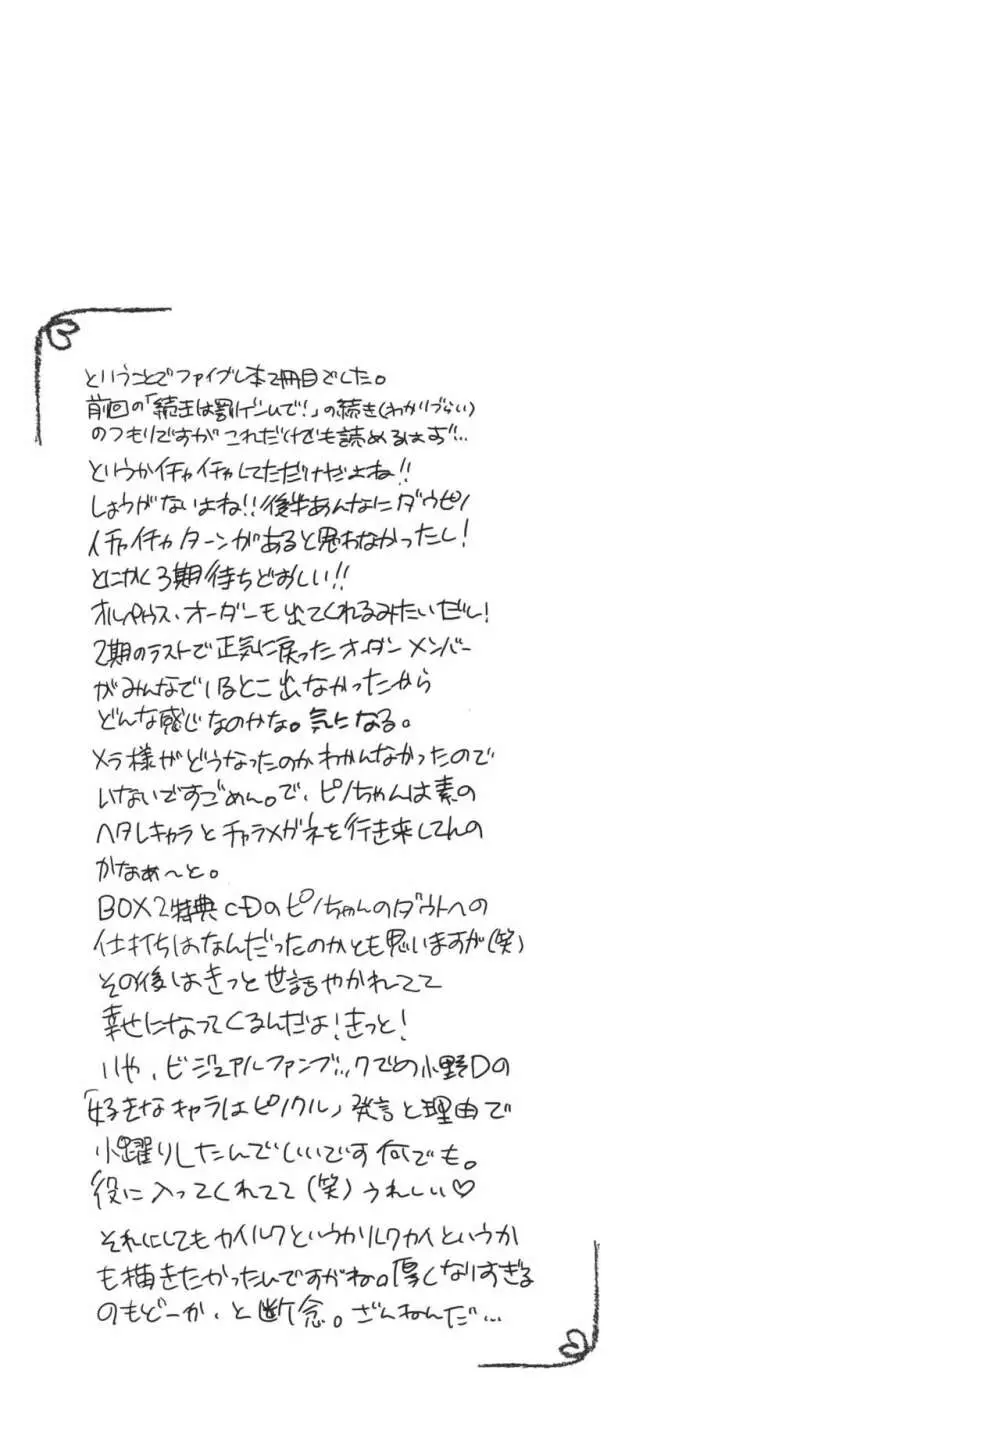 ということでファイブレ本2冊目でした。
前回の「続・王は罰ゲームで!」の続き(わかりづらい)
のつもりですがこれだけでも読めるはず…
というかイチャイチャしてただけだよね!!
しょうがないよね!!後半あんなにダウピノ
イチャイチャターンがあると思わなかったし!
とにかく3期待ちどおしい!!
オルペウス・オーダーも出てくれるみたいだし!
2期のラストで正気に戻ったオーダーメンバー
がみんなでいるとこ出なかったから
どんな感じなのかな。気になる。
メラ様がどうなったのかわかんなかったので
いないですごめん。で、ピノちゃんは素の
ヘタレキャラとチャラメガネを行き来してんの
かなぁ〜と。
BOX2特典CDのピノちゃんのダウトへの
仕打ちはなんだったのかとも思いますが(笑)
その後はきっと世話やかれてて
幸せになってくるんだよ!きっと!
いや、ビジュアルファンブックでの小野Dの
「好きなキャラはピノクル」発言と理由で
小躍りしたんでいいです何でも。
役に入ってくれてて(笑)うれしい♡
それにしてもカイルクというかルクカイというか
も描きたかったんですがね。厚くなりすぎる
のもどーか、と断念。ざんねんだ…